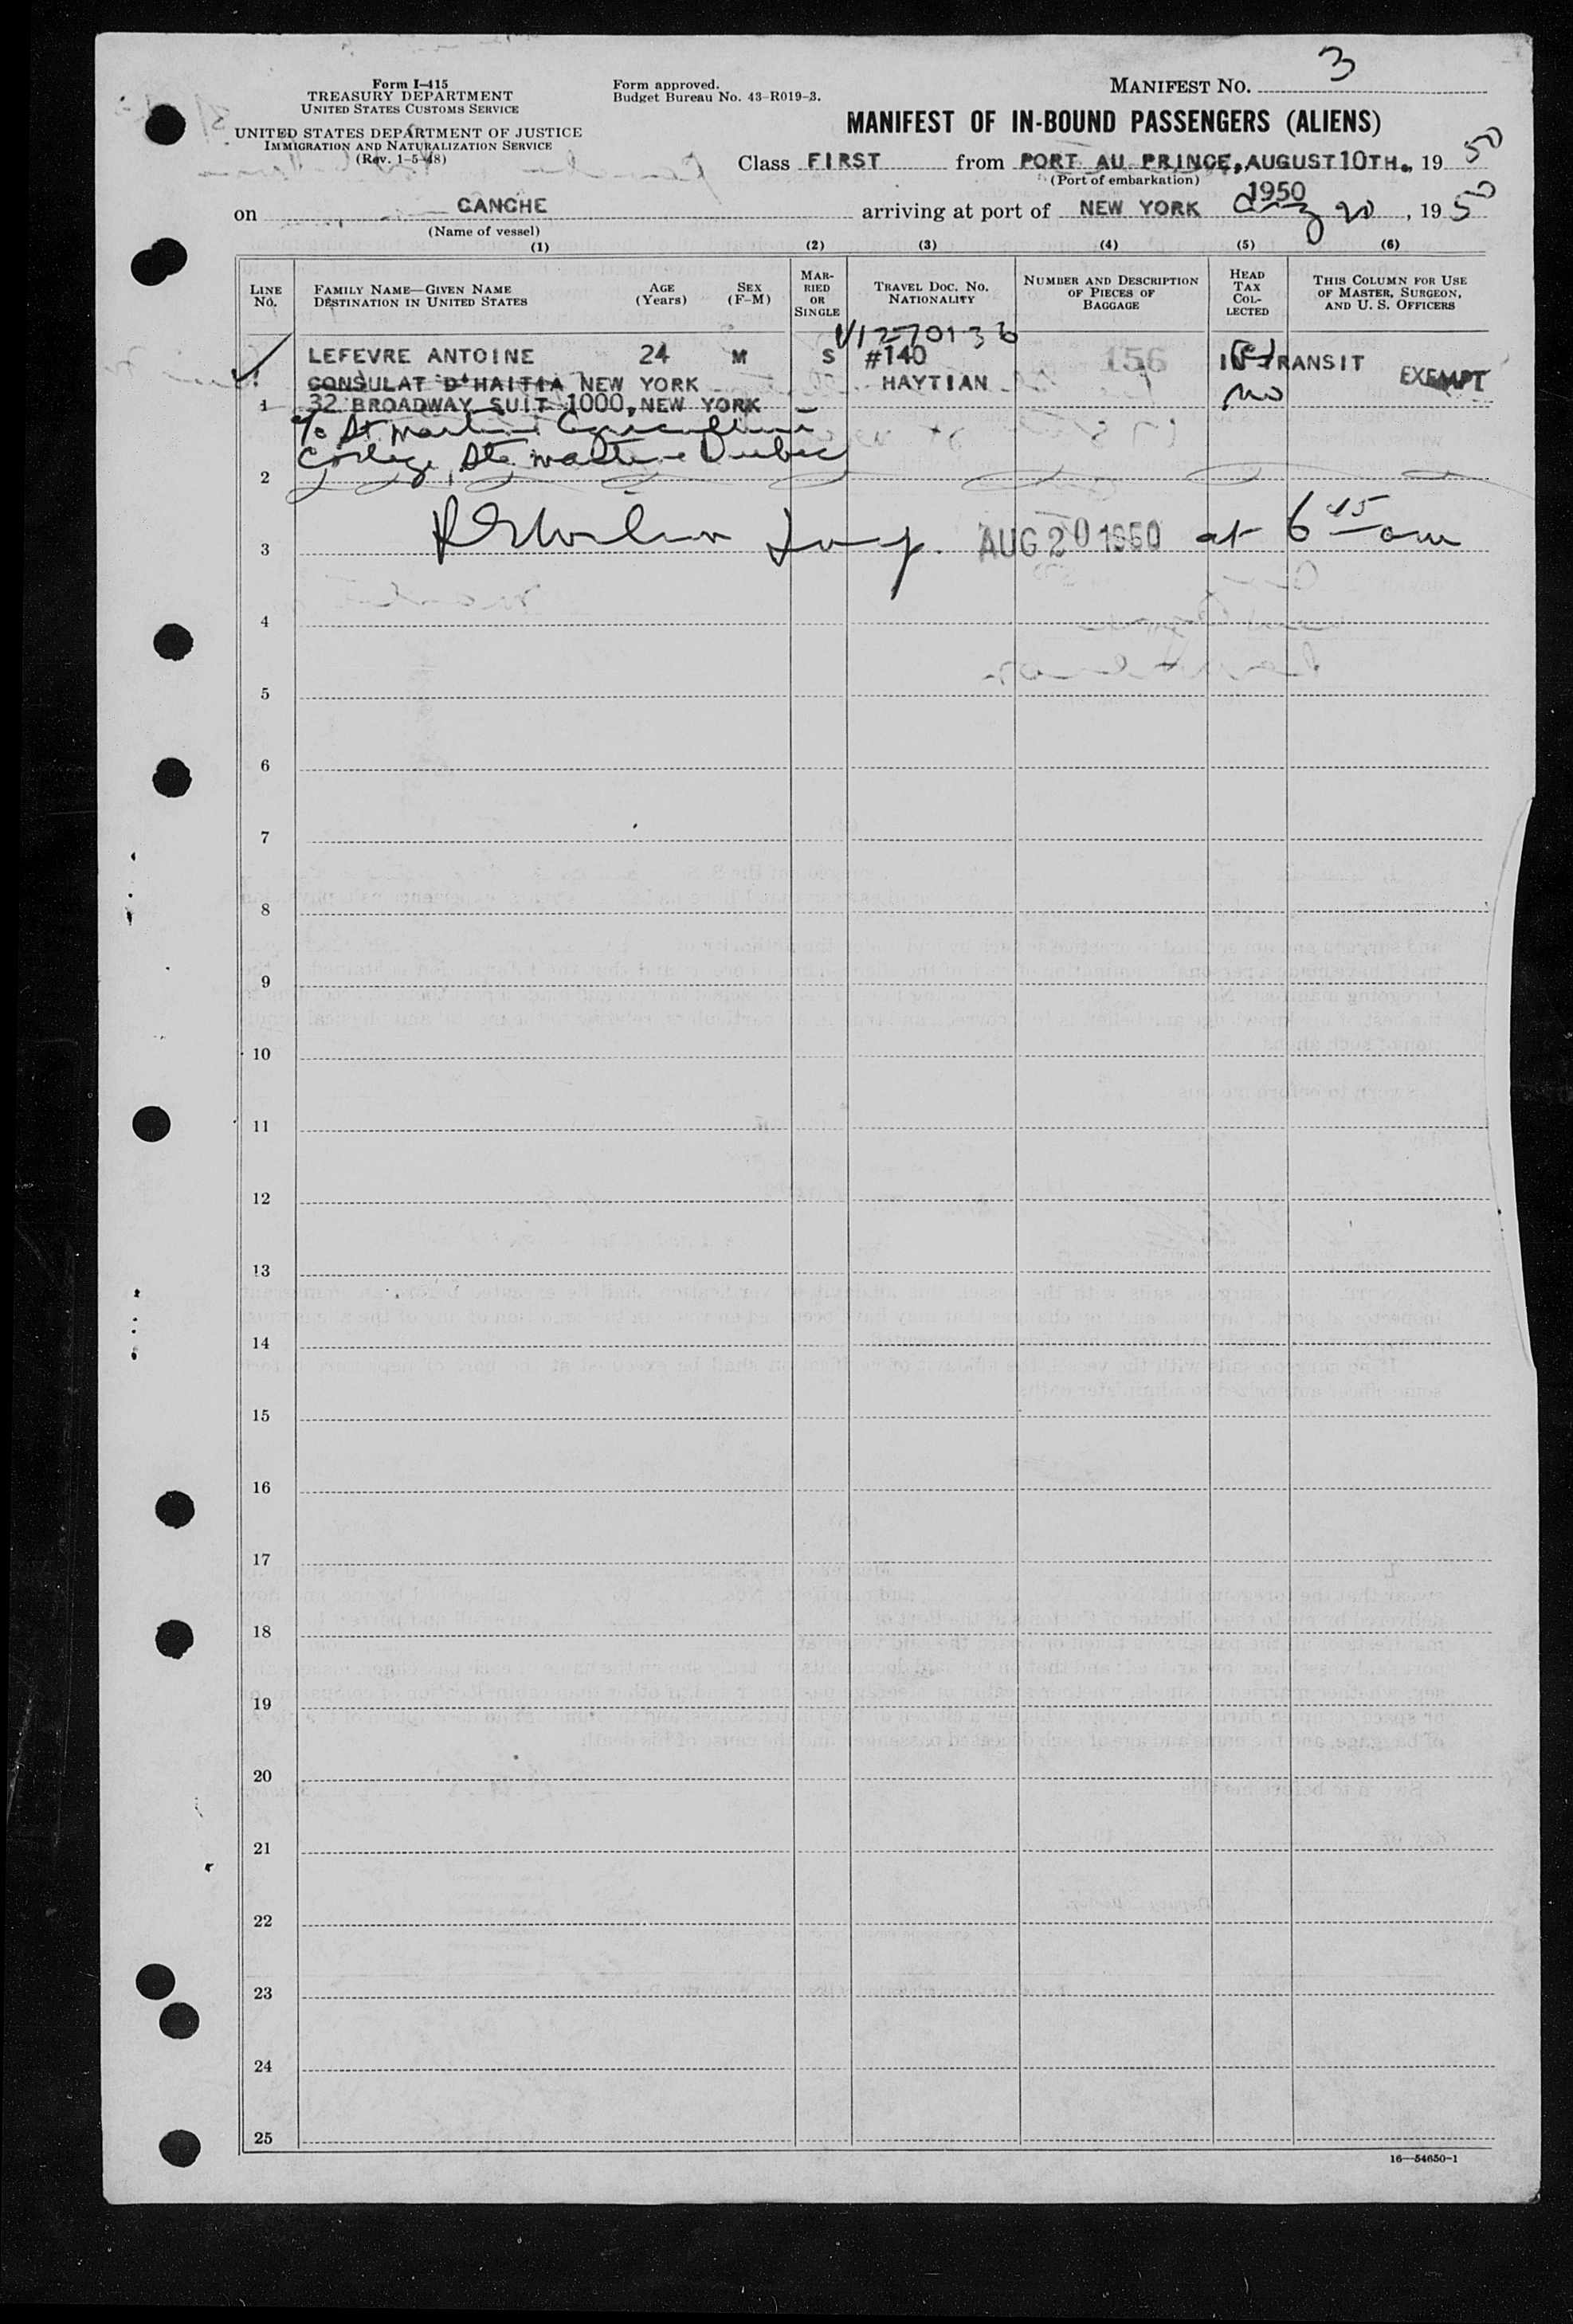 Form I-415
TREASURY DEPARTMENT
UNITED STATES CUSTOMS SERVICE
UNITED STATES DEPARTMENT OF JUSTICE
IMMIGRATION AND NATURALIZATION SERVICE
(Rev. 1-5-48)
Form approved.
Budget Bureau No. 43-R019-3.
MANIFEST NO. 3
MANIFEST OF IN-BOUND PASSENGERS (ALIENS)
Class FIRST from PORT AU PRINCE, AUGUST 10TH., 19 50
(Port of embarkation)
1950
on GANCHE arriving at port of NEW YORK Aug 20, 19 50
(Name of vessel)
(1) (2) (3) (4) (5) (6)
LINE NO.
FAMILY NAME—GIVEN NAME
DESTINATION IN UNITED STATES
AGE (Years)
SEX (F-M)
MARRIED OR SINGLE
TRAVEL DOC. NO. NATIONALITY
NUMBER AND DESCRIPTION OF PIECES OF BAGGAGE
HEAD TAX COLLECTED
THIS COLUMN FOR USE OF MASTER, SURGEON, AND U. S. OFFICERS
V1270136
LEFEVRE ANTOINE 24 M S #140 156 IN TRANSIT
CONSULAT D'HAITIA NEW YORK HAYTIAN no EXEMPT
1 32 BROADWAY SUIT 1000, NEW YORK
c/o St Martine Agriculture
College, Ste Martine Quebec
2
3 Insp. AUG 20 1950 at 6 45 am
4
5
6
7
8
9
10
11
12
13
14
15
16
17
18
19
20
21
22
23
24
25
16—54650-1